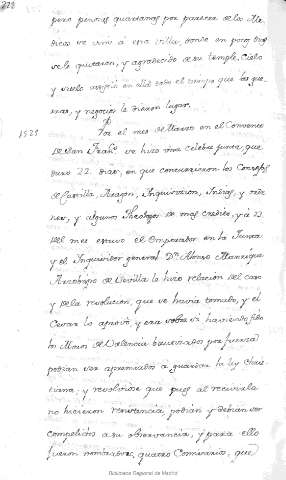 228
pero penosas quartanas por parecer de los Me-
dicos se vino a esta villa, donde en pocos dias
se le quitaron, y agradecido de su temple, Cielo
y suelo asistia en ella todo el tiempo que las gue-
rras, y negocios le dieron lugar.
1525
Por el mes de Marzo en el Convento
de San Fran.co se hizo una celebre junta, que
duro 22 dias, en que concurrieron los Consejos
de Castilla, Aragon, Inquisicion, Indias, y orde-
nes, y algunos Theologos de mas credito, y a 23
del mes estuvo el Emperador en la Junta
y el Inquisidor general Dn. Alonso Manrrique
Arzobispo de Sevilla le hizo relacion del caso
y de la resolucion, que se havia tomado, y el
Cesar la aprovó, y era sobre si haviendo sido
los Moros de Valencia bautizados por fuerza
podian ser apremiados a guardar la ley Chris-
tiana, y resolviose que pues al recivirla
no hicieron resistencia podian y debian ser
compelidos a su observancia, y para ello
fueron nombrados quatro Comisarios, que
Biblioteca Regional de Madrid